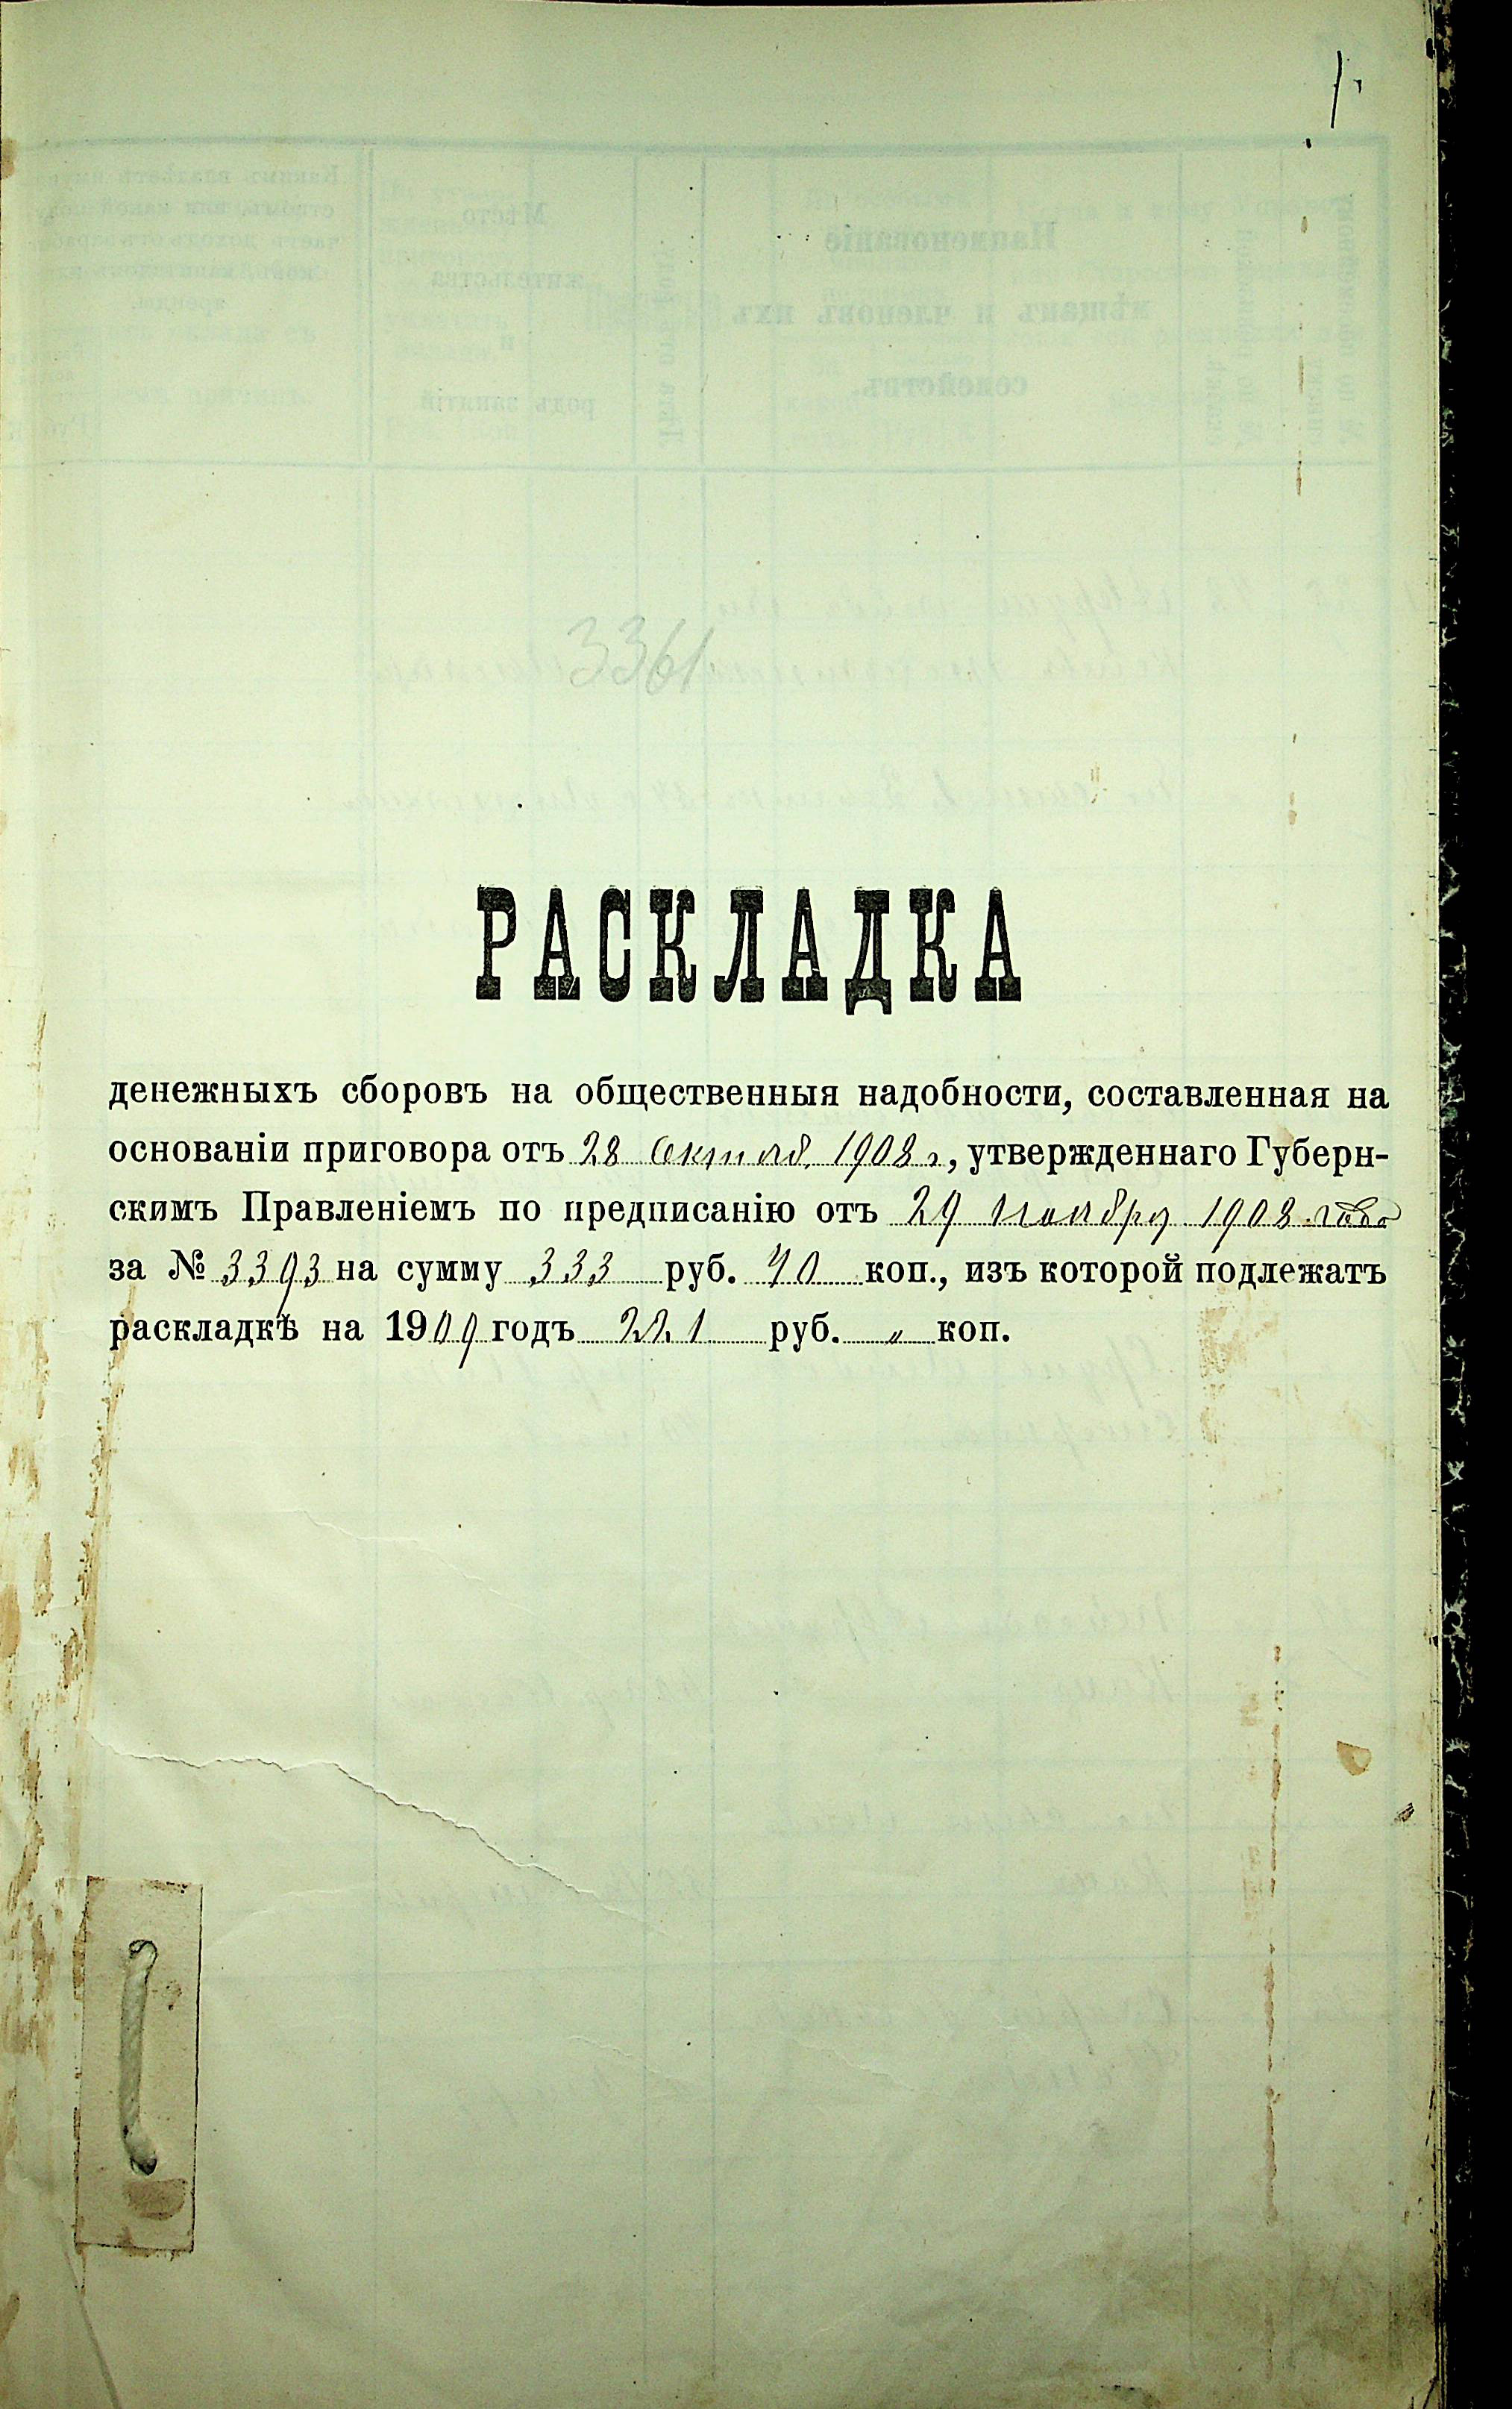 1.
3361
РАСКЛАДКА
денежныхъ сборовъ на общественныя надобности, составленная на
основаніи приговора отъ 28 октяб. 1908 г, утвержденнаго Губерн-
скимъ Правленіемъ по предписанію отъ 29 ноября 1908 года
за № 3393 на сумму 333 руб. 40 коп., изъ которой подлежатъ
раскладкѣ на 1909 годъ 221 руб. „ коп.